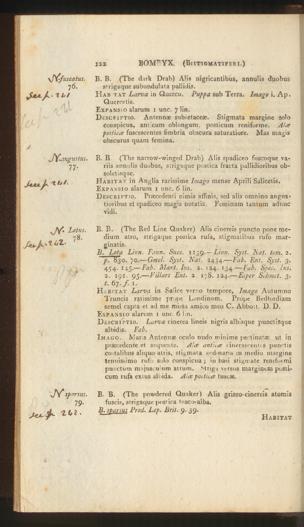 122 BOMBYX. (Stigmatiferi.)
N. fuscatus. 76. B. B. (The dark Drab) Alis nigricantibus, annulis duobus
strigaque subundulata pallidis.
See p. 241
Habitat Larva in Quercu. Puppa sub Terra. Imago i. Ap.
Quercetis.
Expansio alarum 1 unc. 7 lin.
Descriptio. Antennæ subsetaceæ. Stigmata margine solo
conspicua, anticum oblongum, posticum reniforme. Alæ
posticæ fuscescentes fimbria obscura saturatiore. Mas magis
obscurus quam femina.
N. angustus. 77. B. B. (The narrow-winged Drab) Alis spadiceo fuscoque variis
annulis duobus, strigaque postica fracta pallidioribus obsoletisque.
See p. 241.
Habitat in Anglia rarissime Imago mense Aprili Salicetis.
Expansio alarum 1 unc. 6 lin.
Descriptio. Præcedenti nimis affinis, sed alis omnino angustioribus
et spadiceo magis notatis. Feminam tantum adhuc
vidi.
N. Lotus. 78. B. B. (The Red Line Quaker) Alis cinereis puncto pone medium
atro, strigaque postica rufa, stigmatibus rufo marginatis.
See p. 242.
B. Lota Linn. Faun. Suec. 1139.—Linn. Syst. Nat. tom. 2.
p. 830. 70.—Gmel. Syst. Nat. 2434.—Fab. Ent. Syst. 3.
454. 125.—Fab. Mant. Ins. 2. 124. 134.—Fab. Spec. Ins.
2. 191. 95.—Villars Ent. 2. 178. 124.—Esper Schmet. 3.
t. 67. f. 1.
Habitat Larva in Salice verso tempore, Imago Autumno
Truncis rarissime prope Londinum. Prope Bedfordiam
semel capta et ad me missa amico meo C. Abbott. D. D.
Expansio alarum 1 unc. 6 lin.
Descriptio. Larva cinerea lineis nigris albisque punctisque
albidis. Fab.
Imago. Maris Antennæ oculo nudo minime pectinatæ ut in
præcedente et sequente. Alæ anticæ cinerascentes punctis
costalibus aliquot atris, stigmata ordinaria in medio margine
tenuissimo rufo solo conspicua; in basi stigmatis reniformis
punctum majusculum atrum. Striga versus marginem posticum
rufa extus albida. Alæ posticæ fuscæ.
N. sparsus. 79. B. B. (The powdered Quaker) Alis griseo-cinereis atomis
fuscis, strigaque postica fusco-alba.
See p. 242.
B. sparsus Prod. Lep. Brit. 9. 39.
Habitat